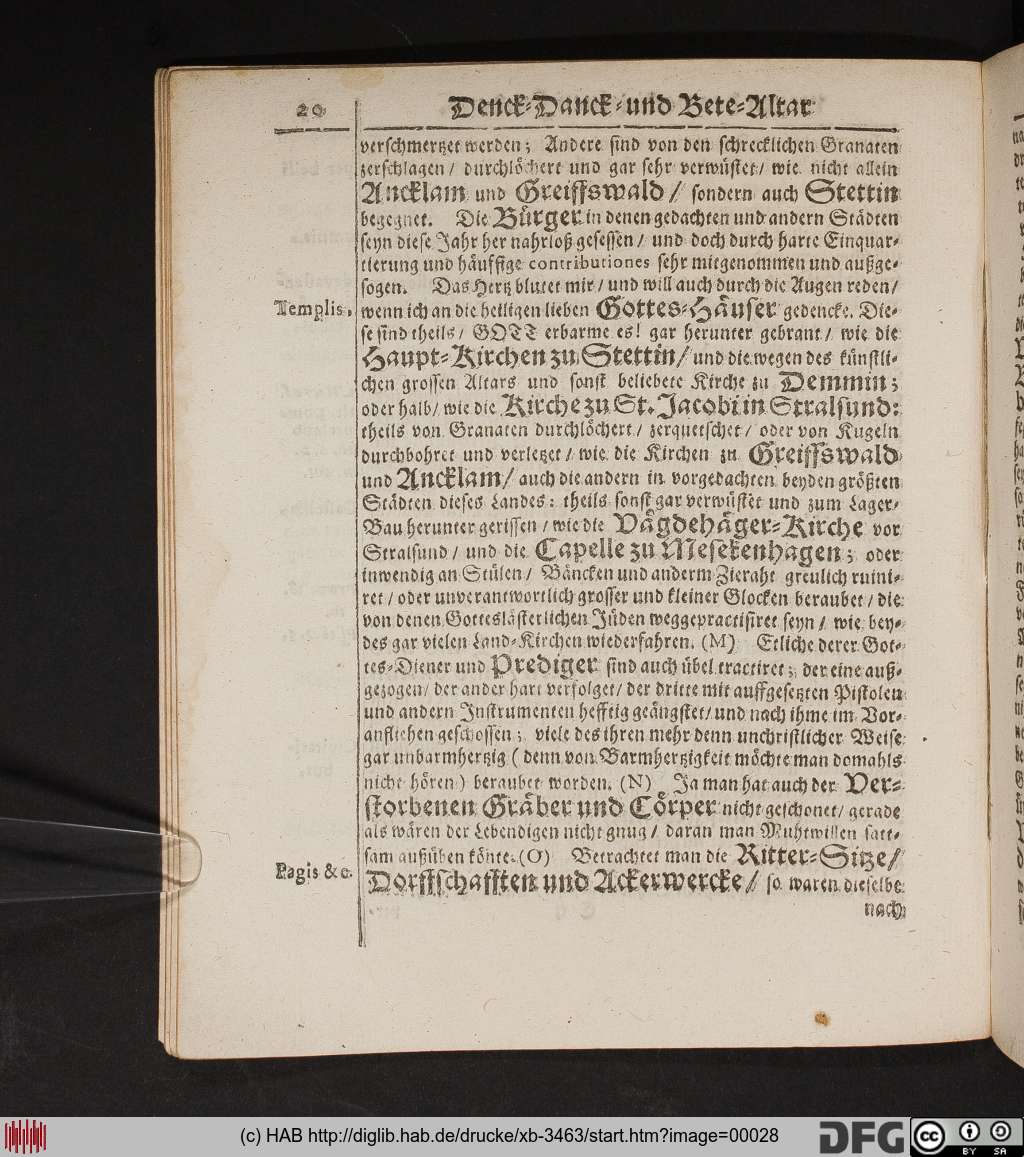 20
Denck-Danck-und Bete-Altar
verschmertzet werden; Andere sind von den schrecklichen Granaten
zerschlagen / durchlöchert und gar sehr verwüstet / wie nicht allein
Ancklam und Greiffswald / sondern auch Stettin
begegnet. Die Bürger in denen gedachten und andern Städten
seyn diese Jahr her nahrloß gesessen / und doch durch harte Einquar-
tierung und häuffige contributiones sehr mitgenommen und außge-
sogen. Das Hertz blutet mir / und will auch durch die Augen reden /
Templis.
wenn ich an die heiligen lieben Gottes-Häuser gedencke. Die-
se sind theils / GOTT erbarme es! gar herunter gebrant / wie die
Haupt-Kirchen zu Stettin / und die wegen des künstli-
chen grossen Altars und sonst beliebete Kirche zu Demmin;
oder halb / wie die Kirche zu St. Jacobi in Stralsund:
theils von Granaten durchlöchert / zerquetschet / oder von Kugeln
durchbohret und verletzet / wie die Kirchen zu Greiffswald
und Ancklam / auch die andern in vorgedachten beyden größten
Städten dieses Landes: theils sonst gar verwüstet und zum Lager-
Bau herunter gerissen / wie die Vägdehäger-Kirche vor
Stralsund / und die Capelle zu Mesekenhagen; oder
inwendig an Stülen / Bäncken und anderm Zieraht greulich ruini-
ret / oder unverantwortlich grosser und kleiner Glocken beraubet / die
von denen Gotteslästerlichen Jüden weggepractisiret seyn / wie bey-
des gar vielen Land-Kirchen wiederfahren. (M) Etliche derer Got-
tes-Diener und Prediger sind auch übel tractiret; der eine auß-
gezogen / der ander hart verfolget / der dritte mit auffgesetzten Pistolen
und andern Instrumenten hefftig geängstet / und nach ihme im Vor-
anfliehen geschossen; viele des ihren mehr denn unchristlicher Weise
gar unbarmhertzig ( denn von Barmhertzigkeit möchte man domahls
nicht hören ) beraubet worden. (N) Ja man hat auch der Ver-
storbenen Gräber und Cörper nicht geschonet / gerade
als wären der Lebendigen nicht gnug / daran man Muhtwillen satt-
sam außüben könte. (O) Betrachtet man die Ritter-Sitze /
Pagis &c.
Dorffschafften und Ackerwercke / so waren dieselbe
nach
(c) HAB http://diglib.hab.de/drucke/xb-3463/start.htm?image=00028
DFG
cc
BY SA